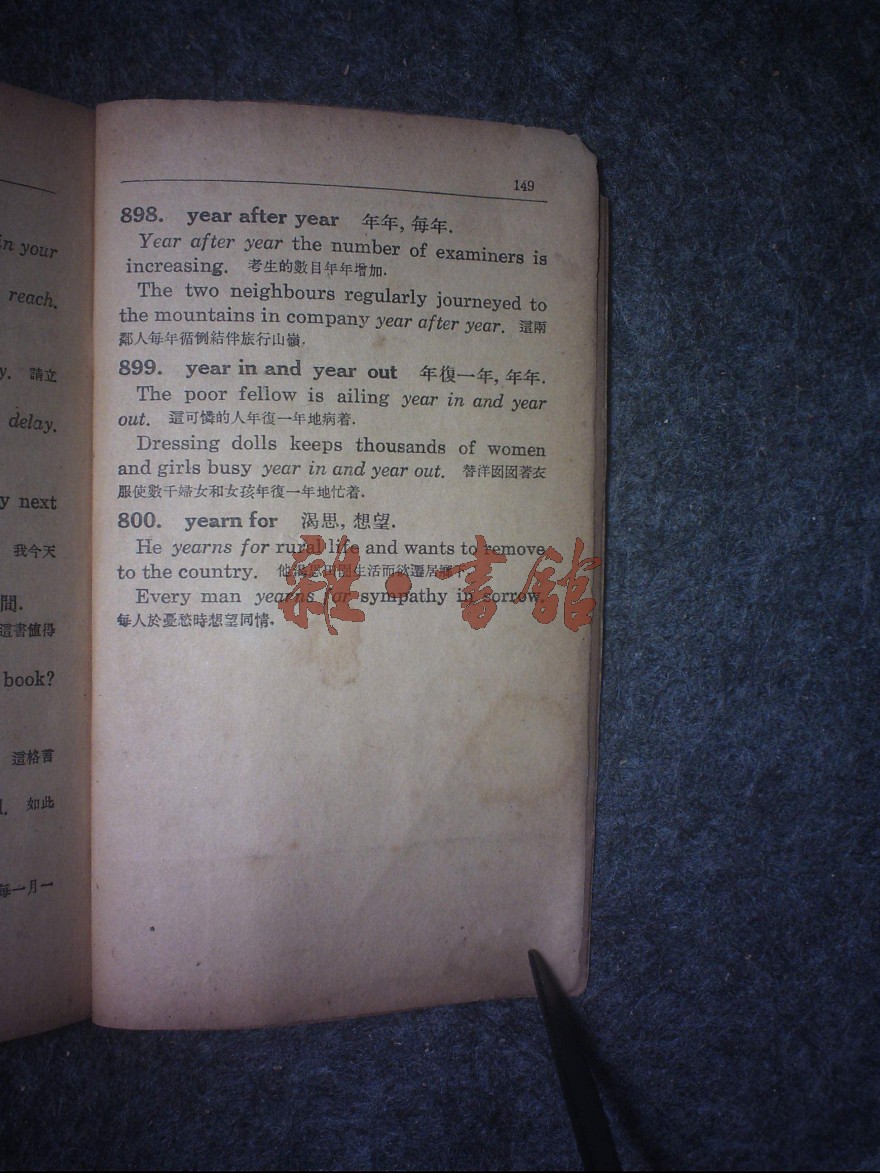 in your
reach.
y. 請立
delay.
y next
我今天
間.
這書值得
book?
這格言
如此
每一月一
149
898. year after year 年年, 每年.
Year after year the number of examiners is
increasing. 考生的數目年年增加.
The two neighbours regularly journeyed to
the mountains in company year after year. 這兩
鄰人每年循例結伴旅行山嶺.
899. year in and year out 年復一年, 年年.
The poor fellow is ailing year in and year
out. 這可憐的人年復一年地病着.
Dressing dolls keeps thousands of women
and girls busy year in and year out. 替洋囡囡著衣
服使數千婦女和女孩年復一年地忙着.
800. yearn for 渴思, 想望.
He yearns for rural life and wants to remove
to the country. 他渴思田園生活而欲遷居鄉下.
Every man yearns for sympathy in sorrow.
每人於憂愁時想望同情.
雜·書館